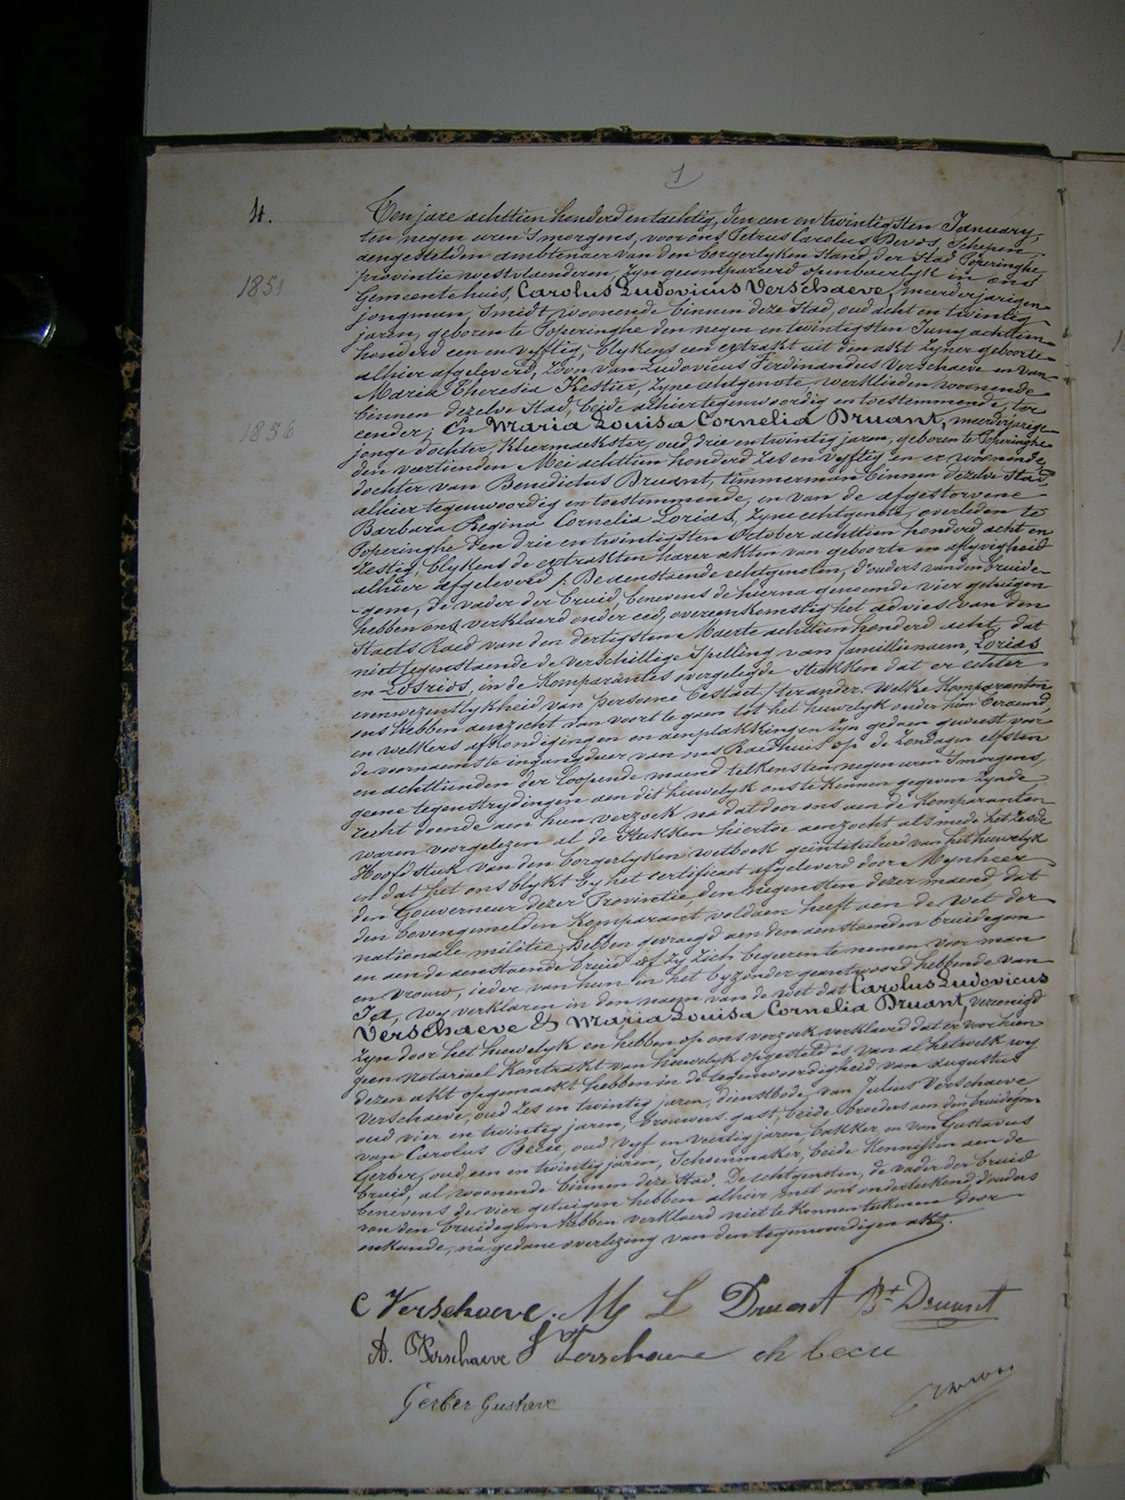 1
4.
Ten jare achttien honderd en tachtig, den een en twintigsten January,
ten negen uren 's morgens, voor ons Petrus Carolus Devos, Schepen,
aengestelden ambtenaer van den borgerlyken stand, der Stad Poperinghe,
provintie westvlaenderen, zyn gecompareerd openbaerlyk in ons
1851
Gemeentehuis, Carolus Ludovicus Verschaeve, meerderjarigen
jongman, smidt, woonende binnen deze Stad, oud acht en twintig
jaren, geboren te Poperinghe den negen en twintigsten Juny achttien
honderd een en vyftig, blykens een extrakt uit den akt zyner geboorte
alhier afgeleverd, zoon van Ludovicus Ferdinandus Verschaeve en van
Maria Theresia Kestier, zyne echtgenote, werklieden woonende
binnen dezelve Stad, beide alhier tegenwoordig en toestemmende, ter
1856
eender; En Maria Louisa Cornelia Druant, meerderjarige
jonge dochter, kleermaekster, oud drie en twintig jaren, geboren te Poperinghe
den veertienden Mei achttien honderd zes en vyftig en er woonende,
dochter van Benedictus Druant, timmerman binnen dezelve Stad,
alhier tegenwoordig en toestemmende, en van de afgestorvene
Barbara Regina Cornelia Lorias, zyne echtgenote, overleden te
Poperinghe den drie en twintigsten October achttien honderd acht en
zestig, blykens de extrakten harer akten van geboorte en aflyvigheid
alhier afgeleverd; De aenstaende echtgenoten, d'ouders van den bruide-
gom, de vader der bruid, benevens de hierna genoemde vier getuigen
hebben ons verklaerd onder eed, overeenkomstig het advies van den
Staets Raed van den dertigsten Maerte achttien honderd acht, dat
niet tegenstaende de verschillige spelling van familienaem, Lorias
en Losrios, in de komparanten overgelegde stukken dat er echter
evenwezentlykheid van persoone bestaet; ter ander. Welke komparanten
ons hebben aenzocht van voort te gaen tot het huwelyk onder hun beraemd,
en welkers afkondigingen en aenplakkingen zyn gedaen geweest voor
de voornaemste ingangdeur van ons Raedhuis op de Zondagen elfsten
en achttienden der loopende maend telkens ten negen uren 's morgens,
geene tegenstrydingen aen dit huwelyk ons te kennen gegeven zynde
recht doende aen hun verzoek na dat door ons aen de komparanten
waren voorgelezen al de stukken hiertoe aenzocht als mede het zesde
Hoofdstuk van den borgerlyken wetboek geintituleerd van het huwelyk
en dat het ons blykt by het certificaet afgeleverd door Mynheer
den Gouverneur dezer Provintie, den negensten dezer maend, dat
den bovengemelden komparant voldaen heeft aen de wet der
nationale militie; Hebben gevraegd aen den aenstaenden bruidegom
en aen de aenstaende bruid of zy zich begeeren te nemen voor man
en vrouw, ieder van hun in het byzonder geantwoord hebbende van
Ja, wy verklaren in den naem van de wet dat Carolus Ludovicus
Verschaeve & Maria Louisa Cornelia Druant, vereenigd
zyn door het huwelyk en hebben op ons verzoek verklaerd dat er voorhien
geen notariael kontrakt van huwelyk opgesteld is van al hetwelk wy
dezen akt opgemaekt hebben in de tegenwoordigheid van Augustus
Verschaeve, oud zes en twintig jaren, dienstbode, van Julius Verschaeve
oud vier en twintig jaren, brouwers gast, beide broeders aen den bruidegom
van Carolus Becu, oud vyf en veertig jaren, bakker, en van Gustavus
Gerber, oud een en twintig jaren, Schoenmaker, beide kennissen aen de
bruid, al woonende binnen deze Stad. De echtgenoten, de vader der bruid
benevens de vier getuigen hebben alhier met ons onderteekend, d'ouders
van den bruidegom hebben verklaerd niet te konnen teekenen door
onkunde, na gedane overlezing van den tegenwoordigen akt.
C Verschaeve. M L Druant Bt Druant
A. Verschaeve J Verschaeve ch becu
Gerber Gustave